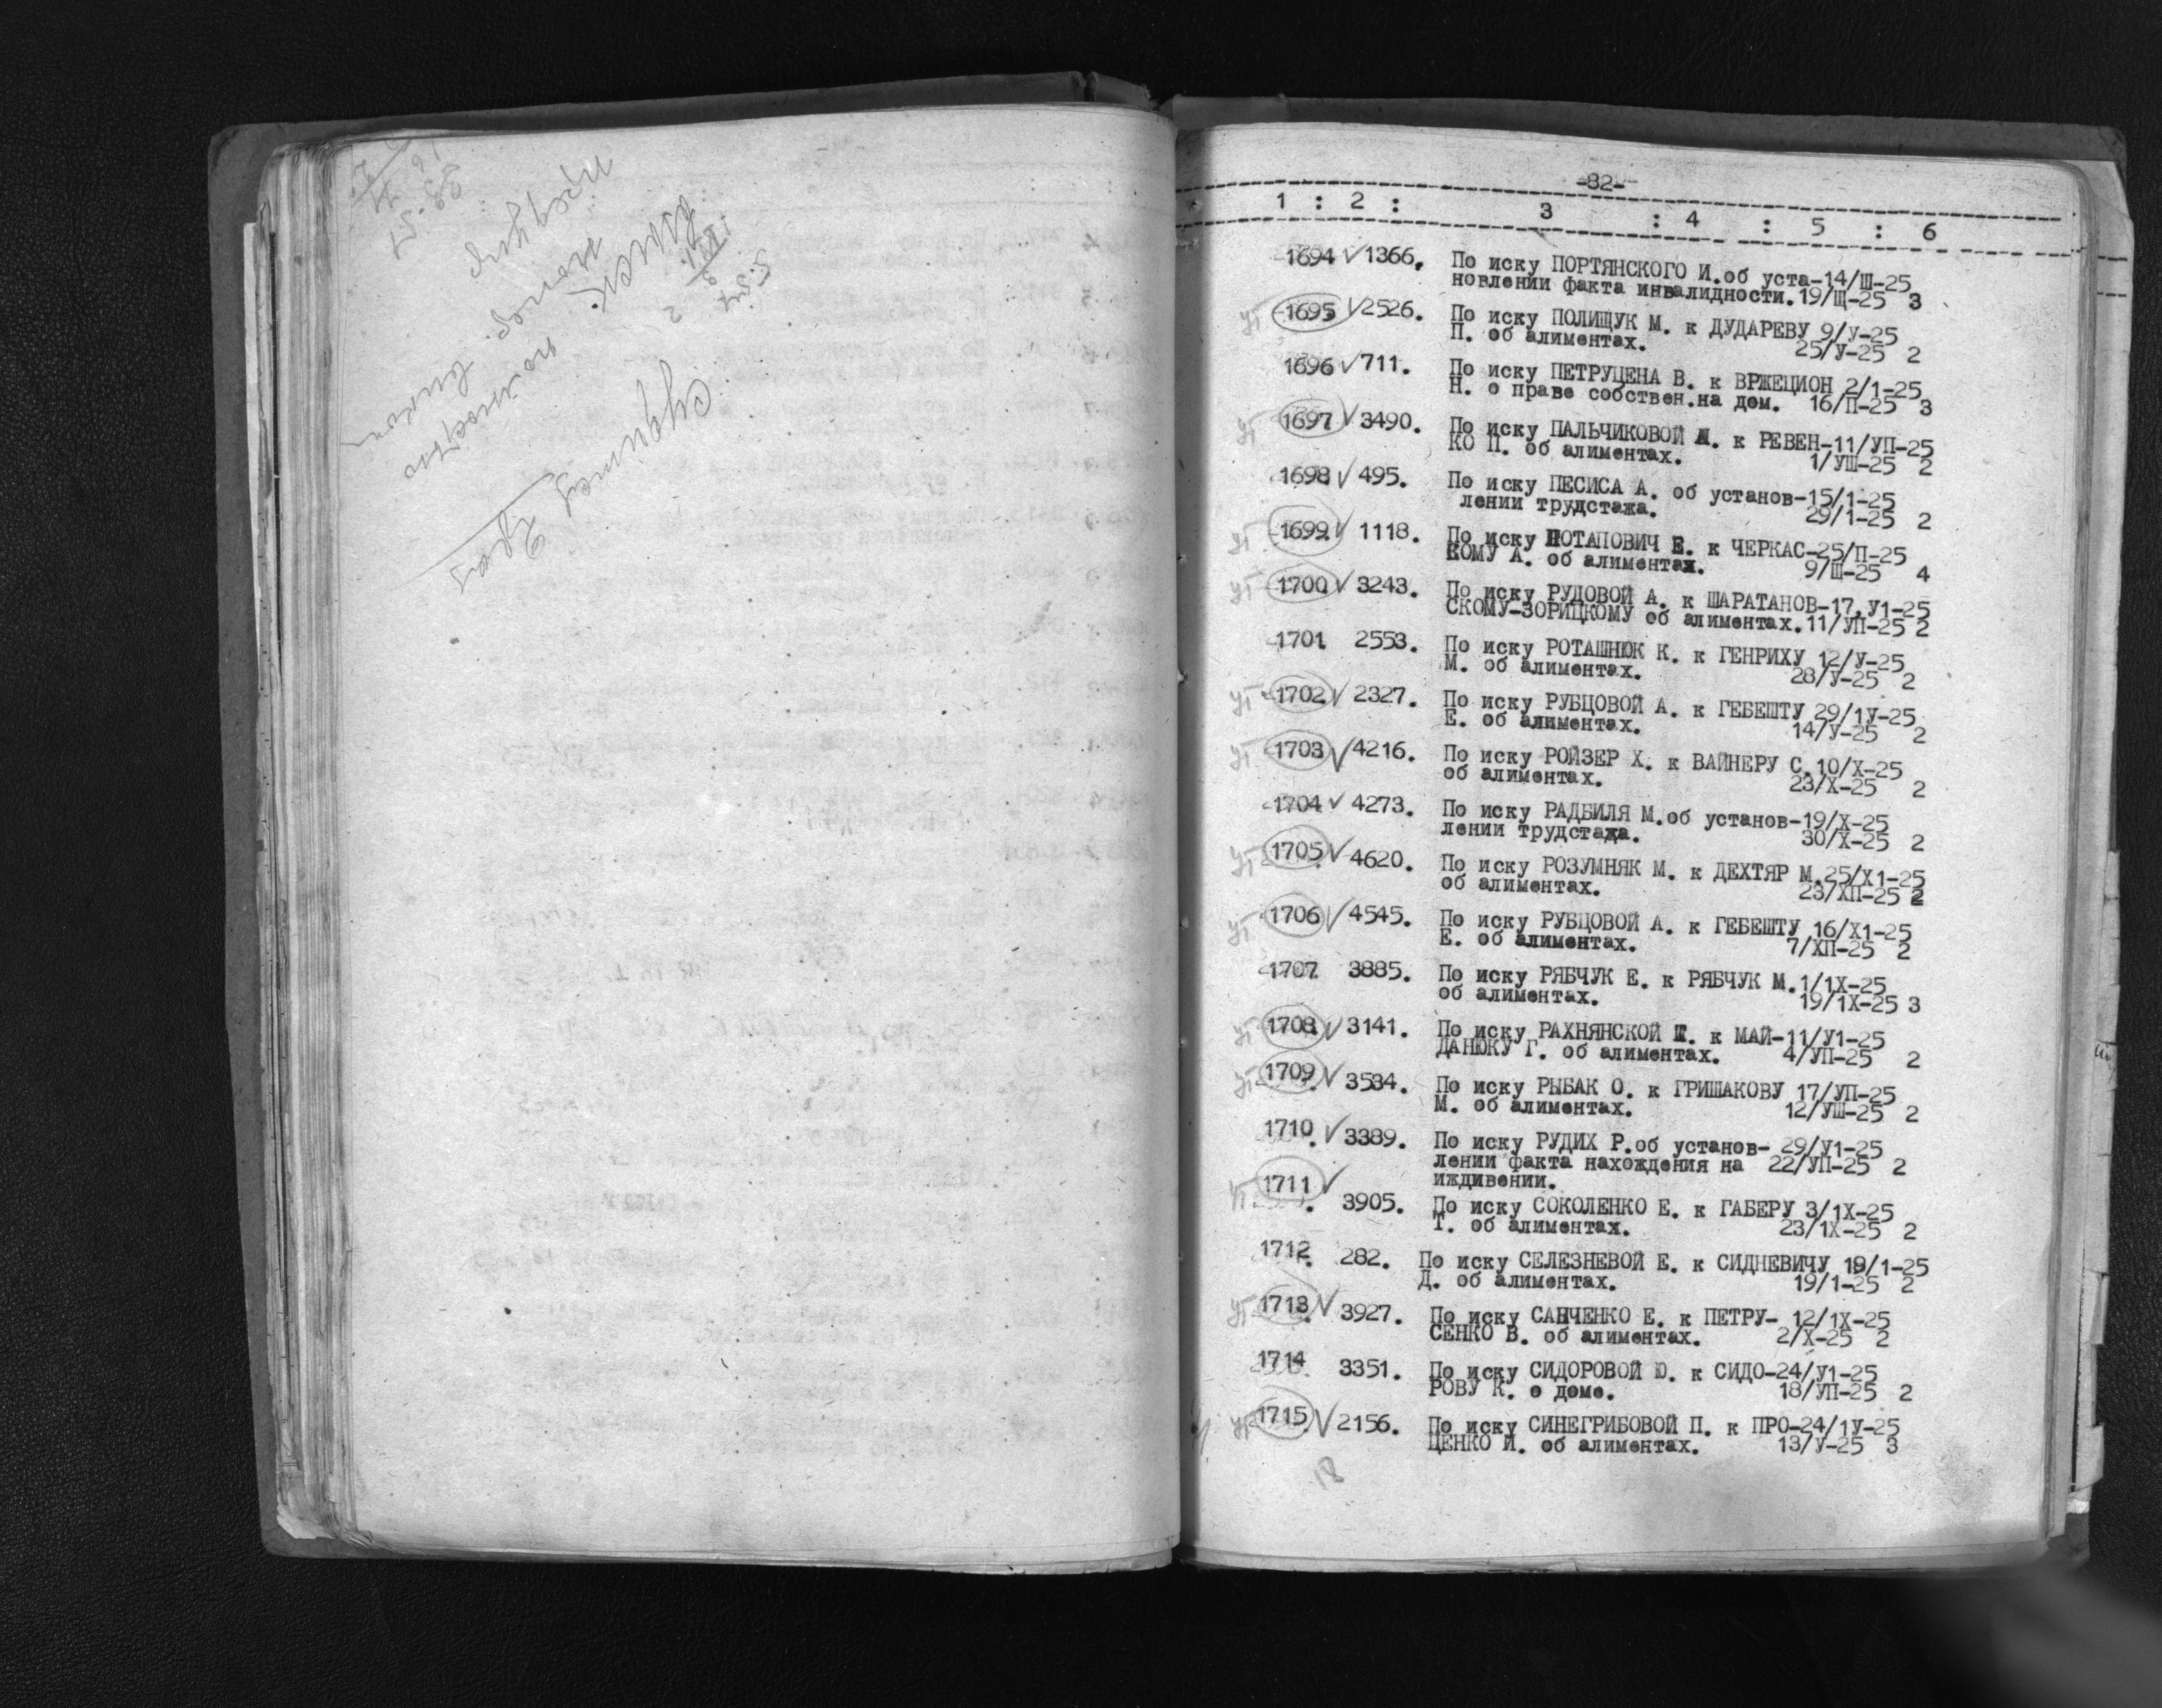 -82-
1 : 2 : 3 : 4 : 5 : 6
1694 √ 1366. По иску ПОРТЯНСКОГО И.об уста-14/Ш-25
новлении факта инвалидности.19/Щ-25 3
уг 1695 √ 2526. По иску ПОЛИЩУК М. к ДУДАРЕВУ 9/У-25
П. об алиментах. 25/У-25 2
1696 √ 711. По иску ПЕТРУЦЕНА В. к ВРЖЕЦИОН 2/1-25
Н. о праве собствен.на дом. 16/П-25 3
уг 1697 √ 3490. По иску ПАЛЬЧИКОВОЙ М. к РЕВЕН-11/УП-25
КО П. об алиментах. 1/УШ-25 2
1698 √ 495. По иску ПЕСИСА А. об установ-15/1-25
лении трудстажа. 29/1-25 2
уг 1699 √ 1118. По иску ПОТАПОВИЧ Е. к ЧЕРКАС-25/П-25
КОМУ А. об алиментах. 9/Ш-25 4
уг 1700 √ 3243. По иску РУДОВОЙ А. к ШАРАТАНОВ-17,У1-25
СКОМУ-ЗОРИЦКОМУ об алиментах.11/УП-25 2
1701 2553. По иску РОТАШНЮК К. к ГЕНРИХУ 12/У-25
М. об алиментах. 28/У-25 2
уг 1702 √ 2327. По иску РУБЦОВОЙ А. к ГЕБЕШТУ 29/1У-25
Е. об алиментах. 14/У-25 2
уг 1703 √ 4216. По иску РОЙЗЕР Х. к ВАЙНЕРУ С.10/Х-25
об алиментах. 23/Х-25 2
1704 √ 4273. По иску РАДБИЛЯ М.об установ-19/Х-25
лении трудстажа. 30/Х-25 2
уг 1705 √ 4620. По иску РОЗУМНЯК М. к ДЕХТЯР М.25/Х1-25
об алиментах. 23/ХП-25 2
уг 1706 √ 4545. По иску РУБЦОВОЙ А. к ГЕБЕШТУ 16/Х1-25
Е. об алиментах. 7/ХП-25 2
1707 3885. По иску РЯБЧУК Е. к РЯБЧУК М.1/1Х-25
об алиментах. 19/1Х-25 3
уг 1708 √ 3141. По иску РАХНЯНСКОЙ к МАЙ-11/У1-25
ДАНЮКУ Г. об алиментах. 4/УП-25 2
уг 1709 √ 3534. По иску РЫБАК О. к ГРИШАКОВУ 17/УП-25
М. об алиментах. 12/УШ-25 2
1710 √ 3389. По иску РУДИХ Р.об установ- 29/У1-25
лении факта нахождения на 22/УП-25 2
иждивении.
уг 1711 √ 3905. По иску СОКОЛЕНКО Е. к ГАБЕРУ 3/1Х-25
Т. об алиментах. 23/1Х-25 2
1712 282. По иску СЕЛЕЗНЕВОЙ Е. к СИДНЕВИЧУ 19/1-25
Д. об алиментах. 19/1-25 2
уг 1713 √ 3927. По иску САНЧЕНКО Е. к ПЕТРУ- 12/1Х-25
СЕНКО В. об алиментах. 2/Х-25 2
1714 3351. По иску СИДОРОВОЙ Ю. к СИДО-24/У1-25
РОВУ К. о доме. 18/УП-25 2
уг 1715 √ 2156. По иску СИНЕГРИБОВОЙ П. к ПРО-24/1У-25
ЦЕНКО И. об алиментах. 13/У-25 3
18